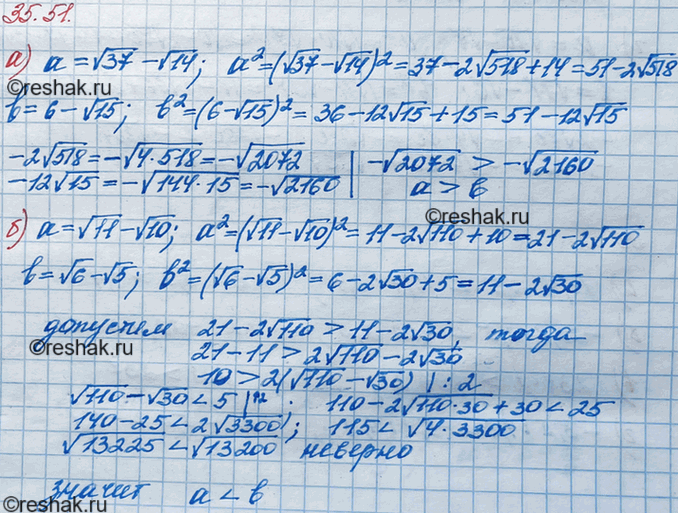 35.51.
а) a = √37 - √14; a² = (√37 - √14)² = 37 - 2√518 + 14 = 51 - 2√518
b = 6 - √15; b² = (6 - √15)² = 36 - 12√15 + 15 = 51 - 12√15
©reshak.ru
-2√518 = -√(4·518) = -√2072 | -√2072 > -√2160
-12√15 = -√(144·15) = -√2160 | a > b
©reshak.ru
б) a = √11 - √10; a² = (√11 - √10)² = 11 - 2√110 + 10 = 21 - 2√110
b = √6 - √5; b² = (√6 - √5)² = 6 - 2√30 + 5 = 11 - 2√30
допустим 21 - 2√110 > 11 - 2√30, тогда
©reshak.ru
21 - 11 > 2√110 - 2√30
10 > 2(√110 - √30) | : 2
√110 - √30 < 5 |²; 110 - 2√(110·30) + 30 < 25
140 - 25 < 2√3300; 115 < √(4·3300)
√13225 < √13200 неверно
©reshak.ru
значит a < b
©reshak.ru